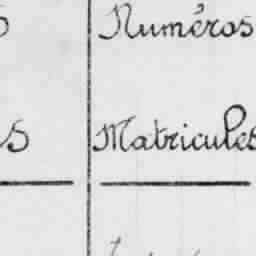 Numéros
s Matricules